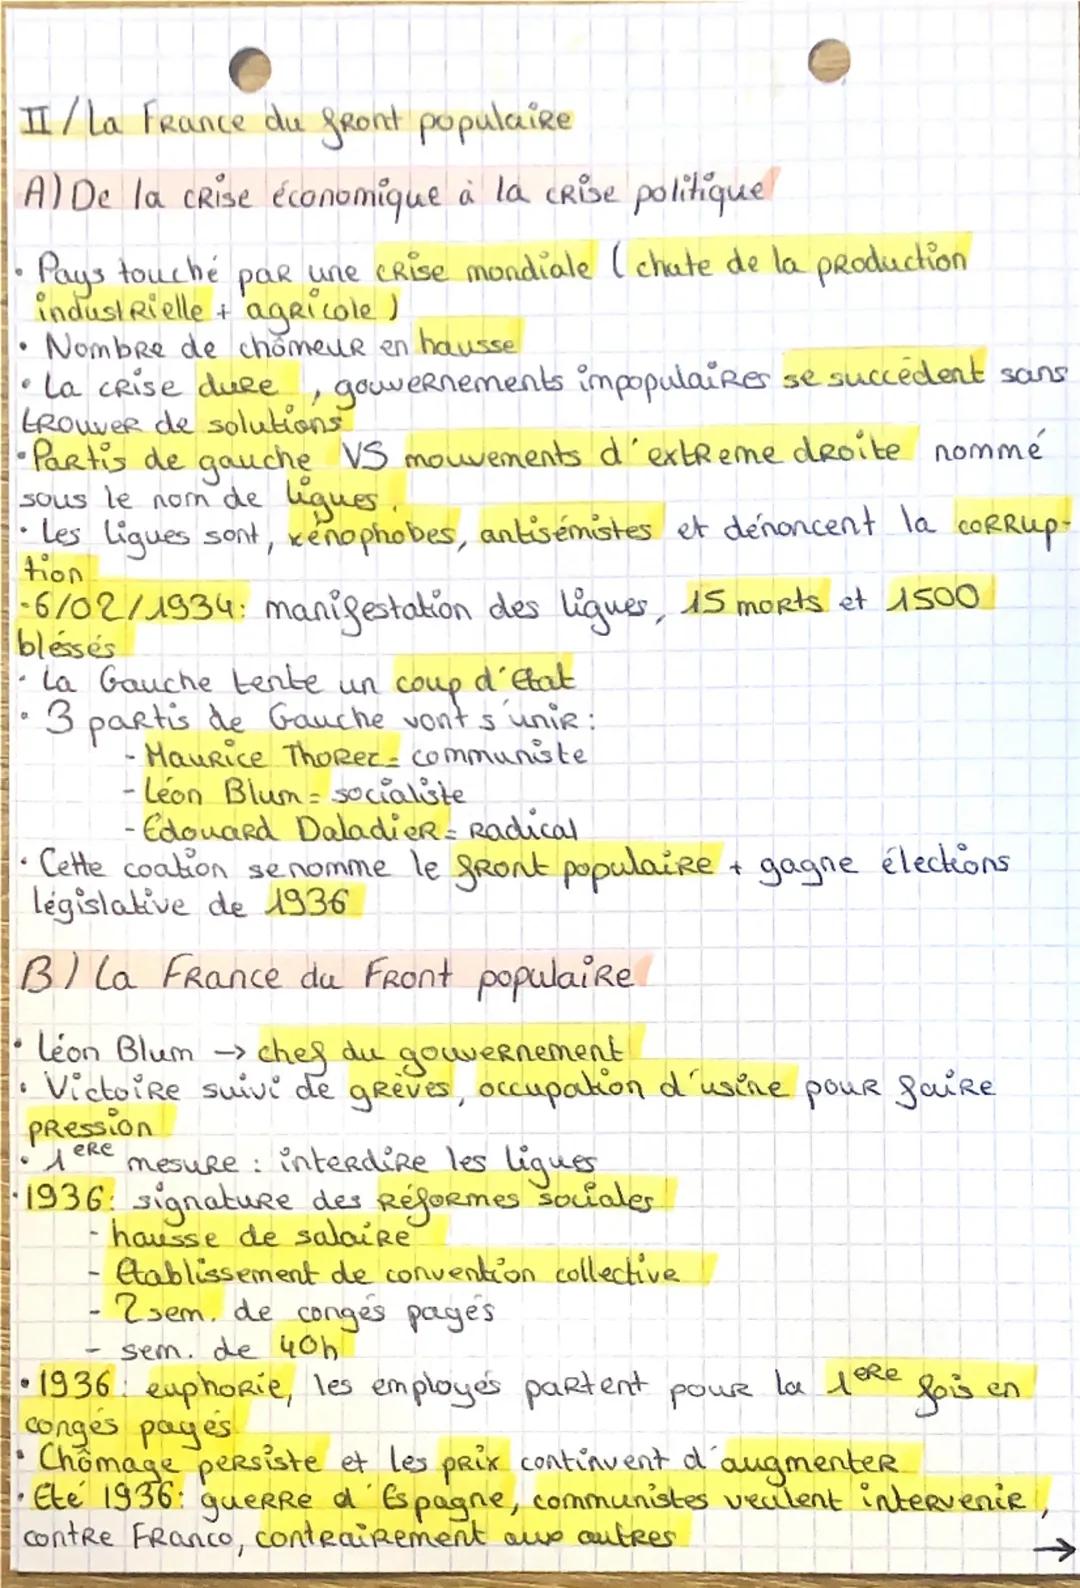 II/La France du front populaire
A) De la crise économique à la crise politique
• Pays touché par une crise mondiale (chute de la production
industrielle + agricole)
• Nombre de chômeur en hausse
• La crise dure, gouvernements impopulaires se succèdent sans
trouver de solutions
• Partis de gauche VS mouvements d'extreme droite nommé
sous le nom de ligues.
• Les ligues sont, xénophobes, antisémistes et dénoncent la corrup-
tion
-6/02/1934: manifestation des ligues, 15 morts et 1500
bléssés
• La Gauche tente un coup d'Etat
• 3 partis de Gauche vont s'unir:
- Maurice Thorez = communiste
- Léon Blum = socialiste
- Edouard Daladier = Radical
• Cette coation se nomme le front populaire + gagne élections
législative de 1936
B) La France du Front populaire
• Léon Blum → chef du gouvernement
• Victoire suivi de grèves, occupation d'usine pour faire
pression
• 1ERE mesure : interdire les ligues
• 1936: signature des Réformes sociales
- hausse de salaire
- Etablissement de convention collective
- 2 sem. de congés payés
- sem. de 40h
• 1936: euphorie, les employés partent pour la 1ERE fois en
congés payés
• Chômage persiste et les prix continuent d'augmenter
• Eté 1936: guerre d'Espagne, communistes veulent intervenir,
contre Franco, contrairement aux autres
→